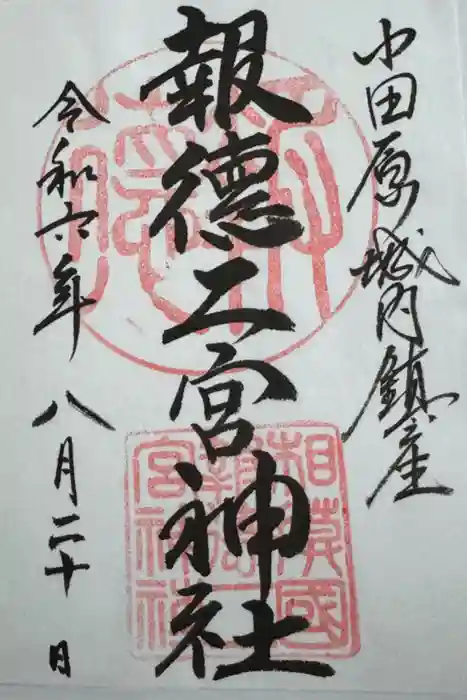 小田原城内鎮座
報徳二宮神社
令和六年八月二十日
相模國報徳二宮神社